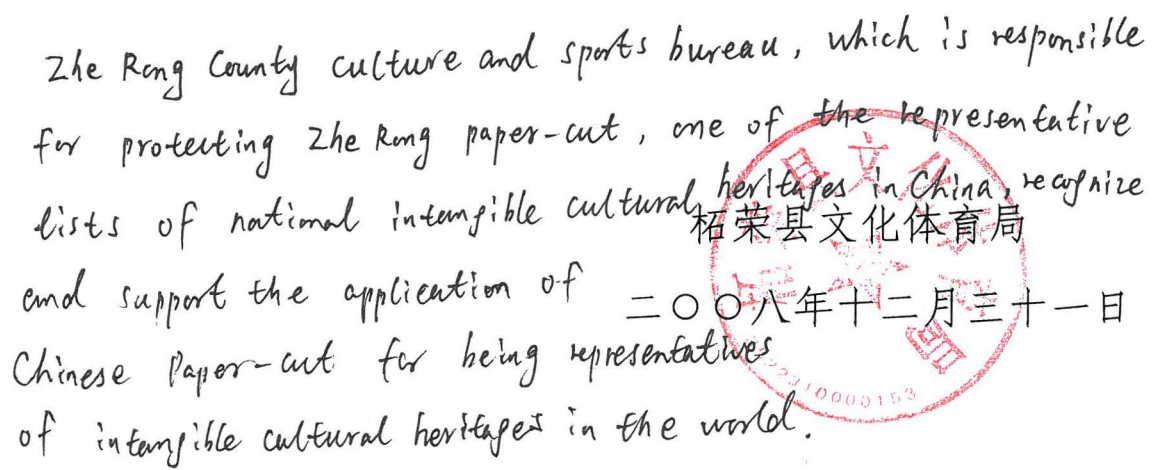 Zhe Rong County culture and sports bureau, which is responsible
for protecting Zhe Rong paper-cut, one of the representative
lists of national intangible cultural heritages in China, recognize
柘荣县文化体育局
and support the application of
二〇〇八年十二月三十一日
Chinese Paper-cut for being representatives
of intangible cultural heritages in the world.